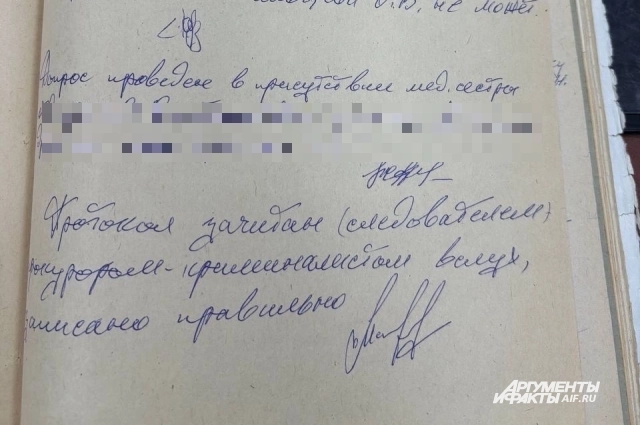 не может.
Допрос проведен в присутствии мед. сестры
Протокол зачитан (следователем)
прокурором-криминалистом вслух,
записано правильно
АРГУМЕНТЫ
И ФАКТЫ AIF.RU